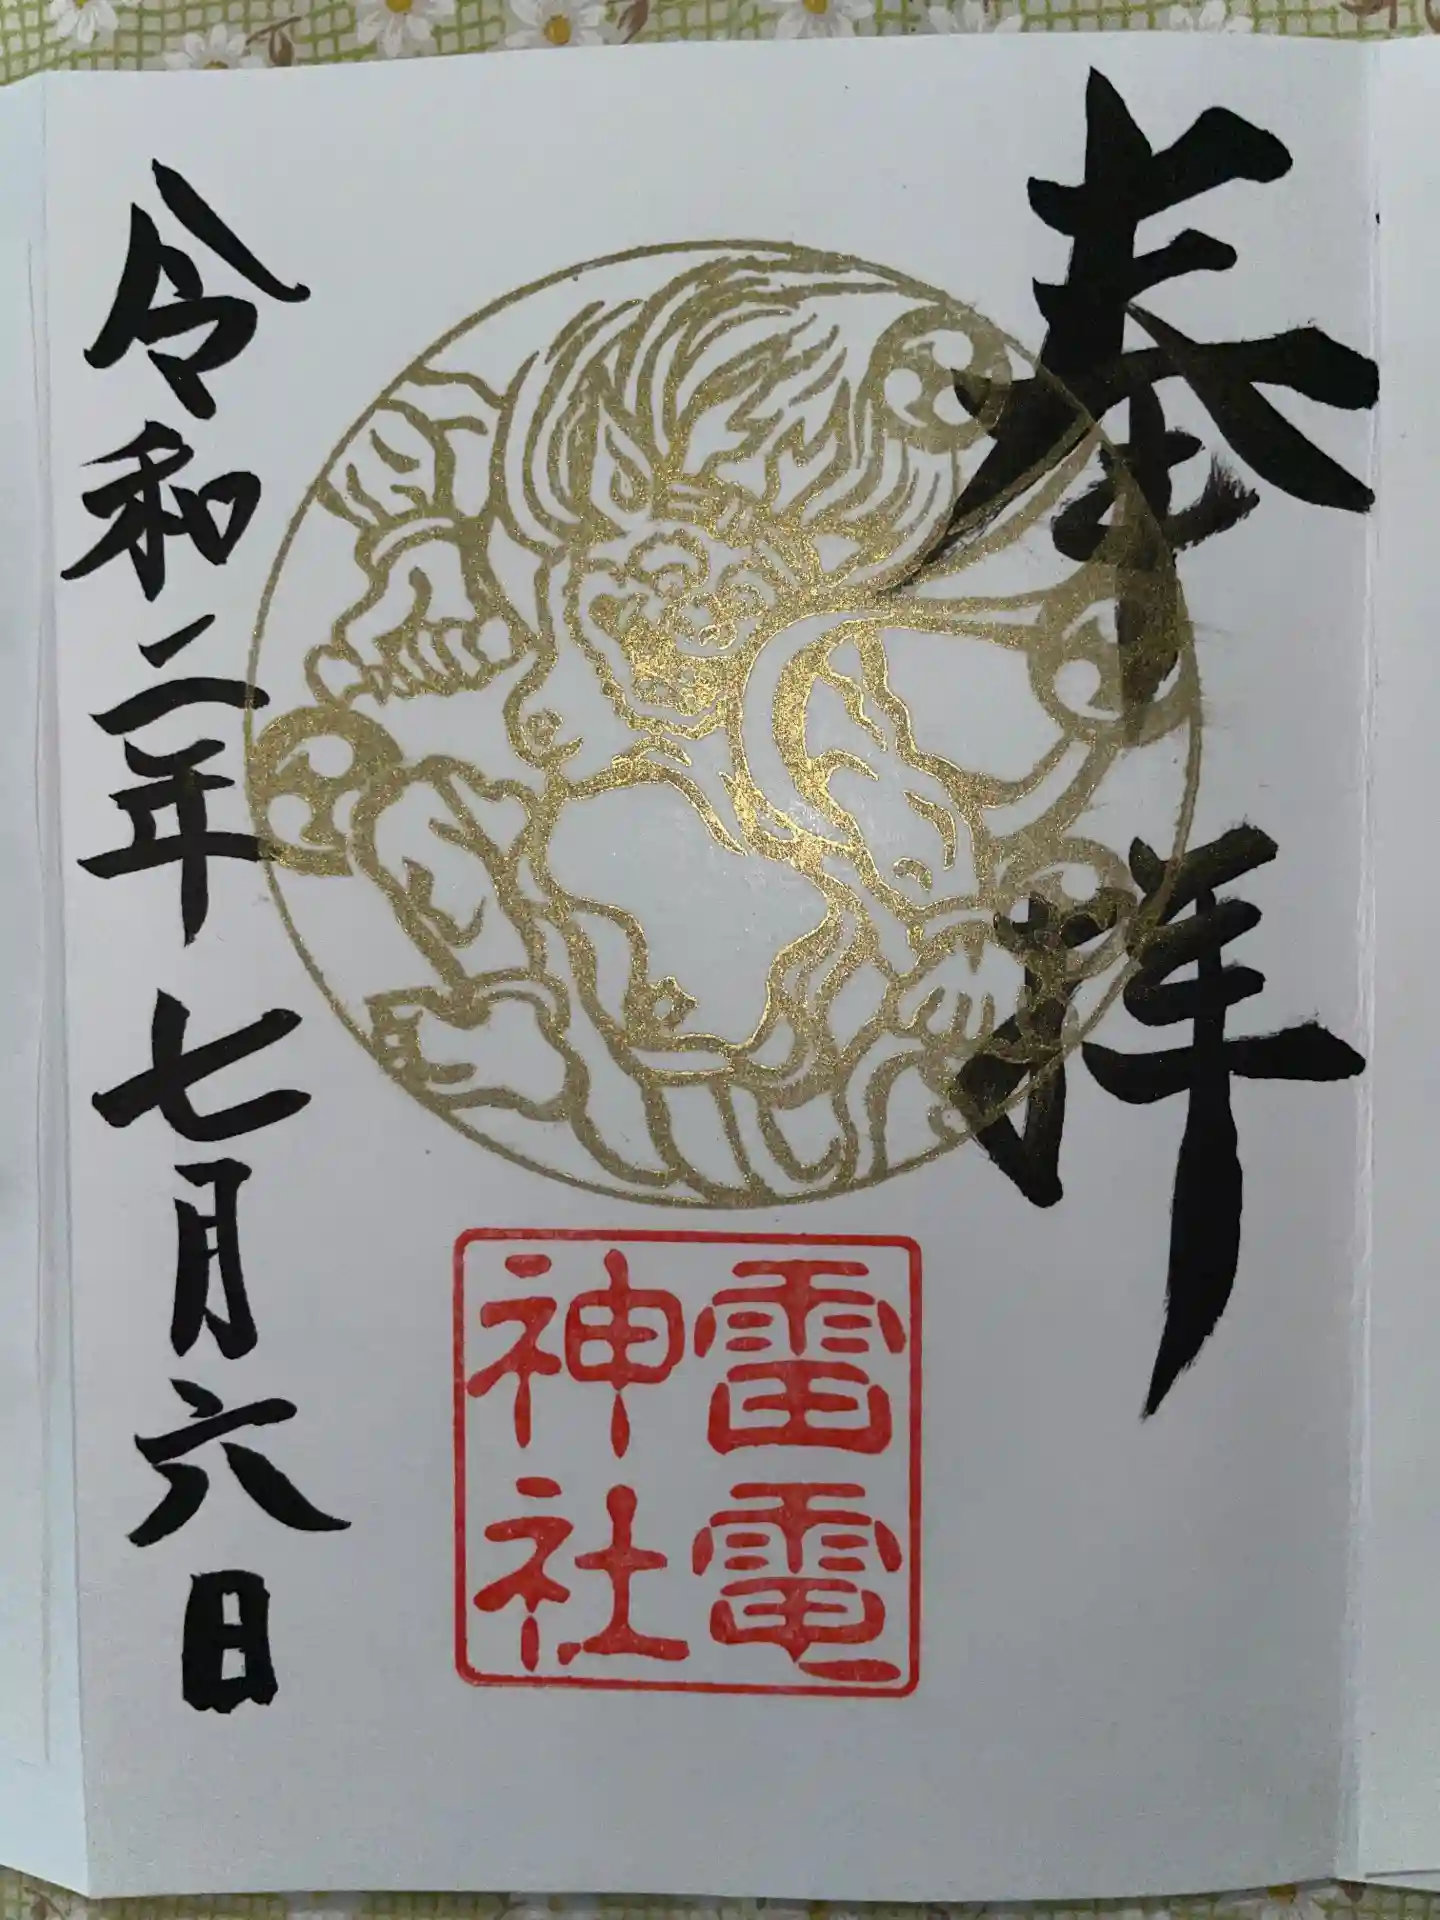 奉拝
雷電
神社
令和二年七月六日